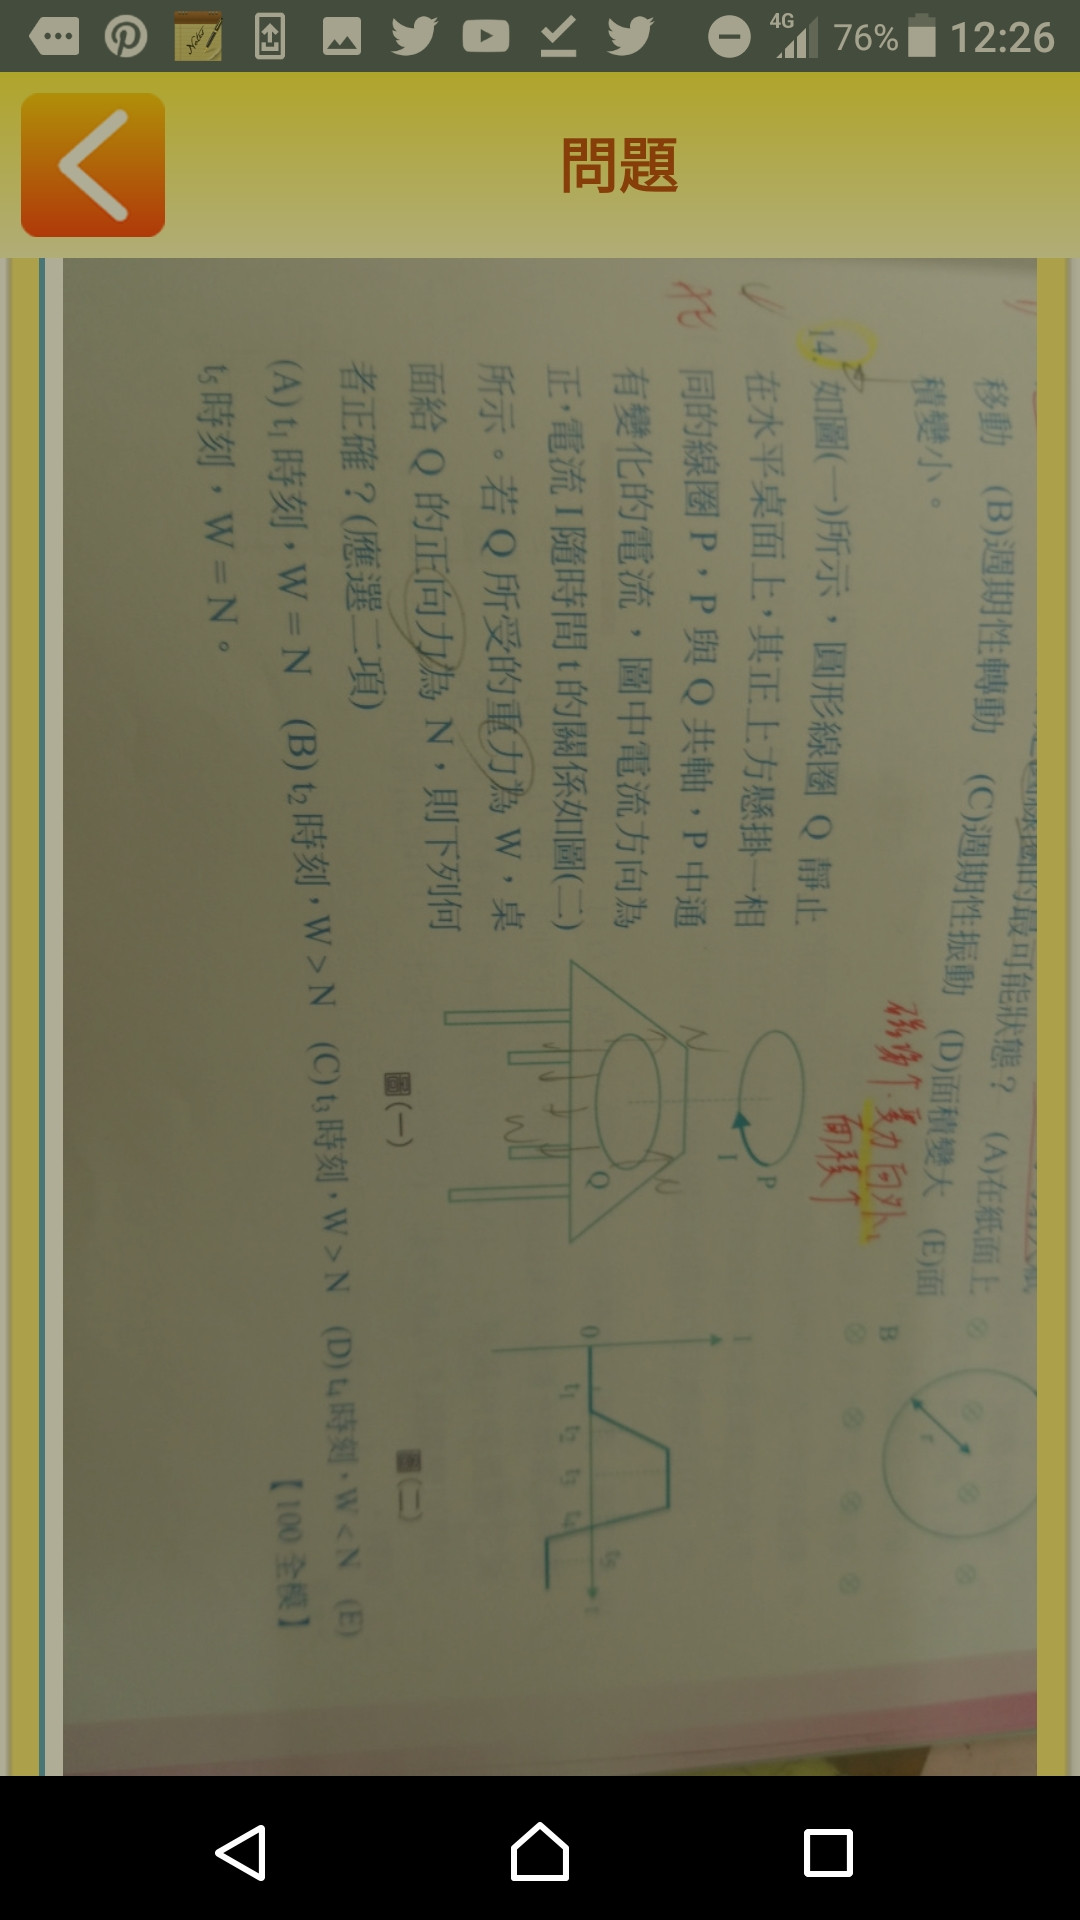 4G
76%
12:26
問題
移動 (B)週期性轉動 (C)週期性振動 (D)面積變大 (E)面
積變小。
14. 如圖(一)所示,圓形線圈 Q 靜止
在水平桌面上,其正上方懸掛一相
同的線圈 P,P 與 Q 共軸,P 中通
有變化的電流,圖中電流方向為
正,電流 I 隨時間 t 的關係如圖(二)
所示。若 Q 所受的重力為 W,桌
面給 Q 的正向力為 N,則下列何
者正確?(應選二項)
(A) t₁ 時刻,W = N (B) t₂ 時刻,W > N (C) t₃ 時刻,W > N (D) t₄ 時刻,W < N (E)
t₅ 時刻,W = N。
【100 全模】
P
I
Q
N
圖(一)
I
0
t₁
t₂
t₃
t₄
t₅
t
圖(二)
B
r
受力向外
面積